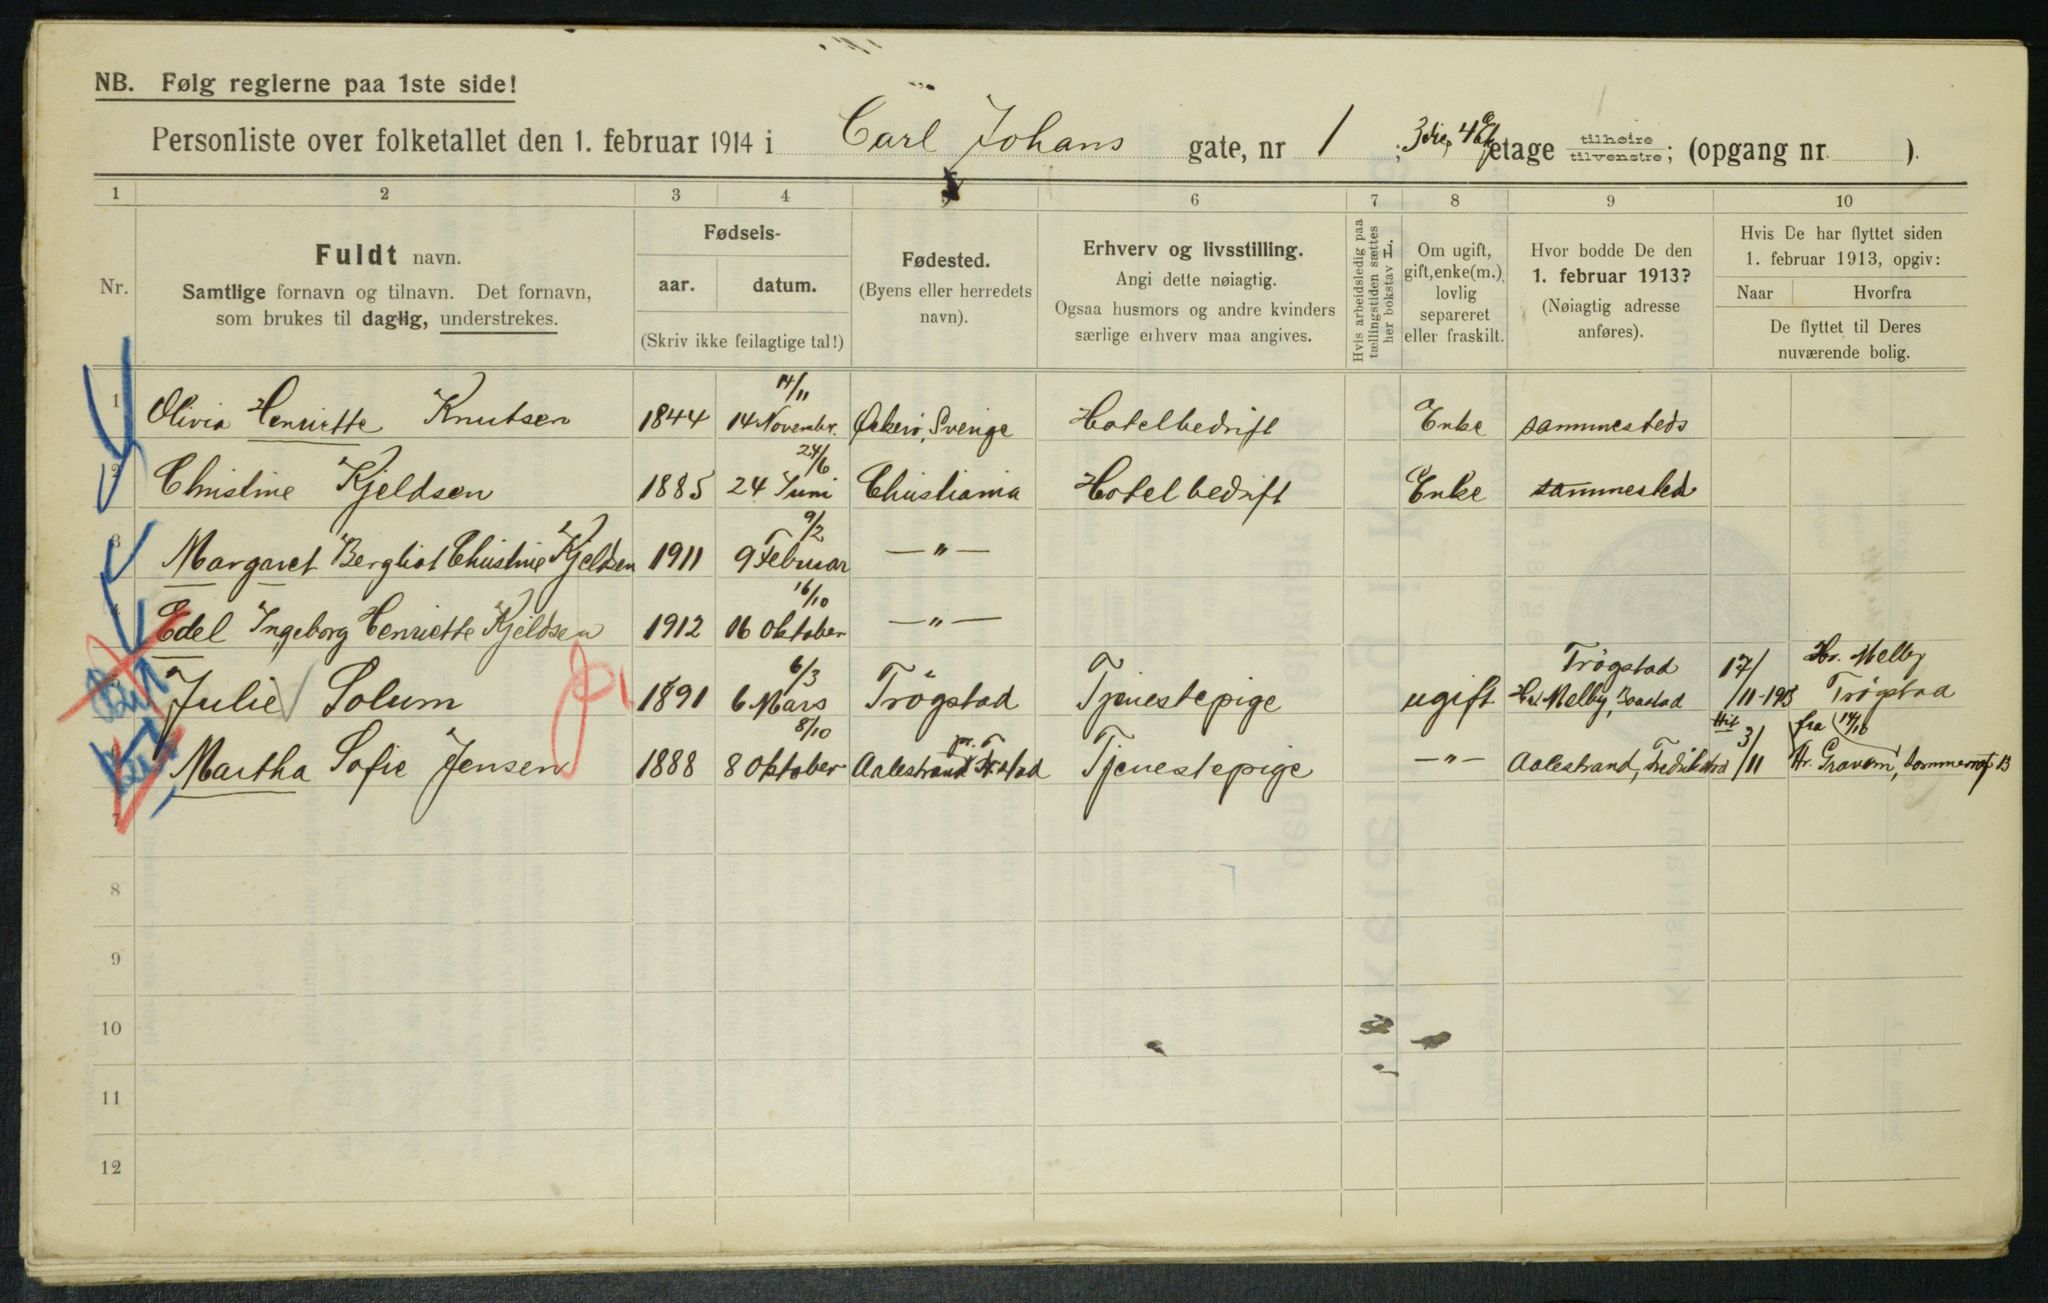 NB. Følg reglerne paa 1ste side!
Personliste over folketallet den 1. februar 1914 i Carl Johans gate, nr 1 ; 3die, 4de etage tilhøire tilvenstre; (opgang nr. ).
1 2 3 4 5 6 7 8 9 10
Nr.
Fuldt navn.
Samtlige fornavn og tilnavn. Det fornavn,
som brukes til daglig, understrekes.
Fødsels-
aar. datum.
(Skriv ikke feilagtige tal!)
Fødested.
(Byens eller herredets
navn).
Erhverv og livsstilling.
Angi dette nøiagtig.
Ogsaa husmors og andre kvinders
særlige erhverv maa angives.
Hvis arbeidsledig paa
tællingstiden sættes
her bokstav L.
Om ugift,
gift, enke(m.),
lovlig
separeret
eller fraskilt.
Hvor bodde De den
1. februar 1913?
(Nøiagtig adresse
anføres).
Hvis De har flyttet siden
1. februar 1913, opgiv:
Naar Hvorfra
De flyttet til Deres
nuværende bolig.
14/11
1 Olivia Henriette Knutsen 1844 14 Novembr. Sverige Hotelbedrift Enke sammesteds
24/6
2 Christine Kjeldsen 1885 24 Juni Christiania Hotelbedrift Enke sammesteds
9/2
3 Margaret Bergliot Christine Kjeldsen 1911 9 Februar — " —
16/10
4 Edel Ingeborg Henriette Kjeldsen 1912 16 Oktober — " —
6/3 Trögstad 17/ Hr. Melby
Julie Solum 1891 6 Mars Trögstad Tjenestepige ugift Melby, /11-1913 Trögstad
8/10 pr. Hit 3/ fra 14/10
Martha Sofie Jensen 1888 8 Oktober Aalestrand Fr.stad Tjenestepige — " — Aalestrand, Fredrikstad /11 Hr.
7
8
9
10
11
12